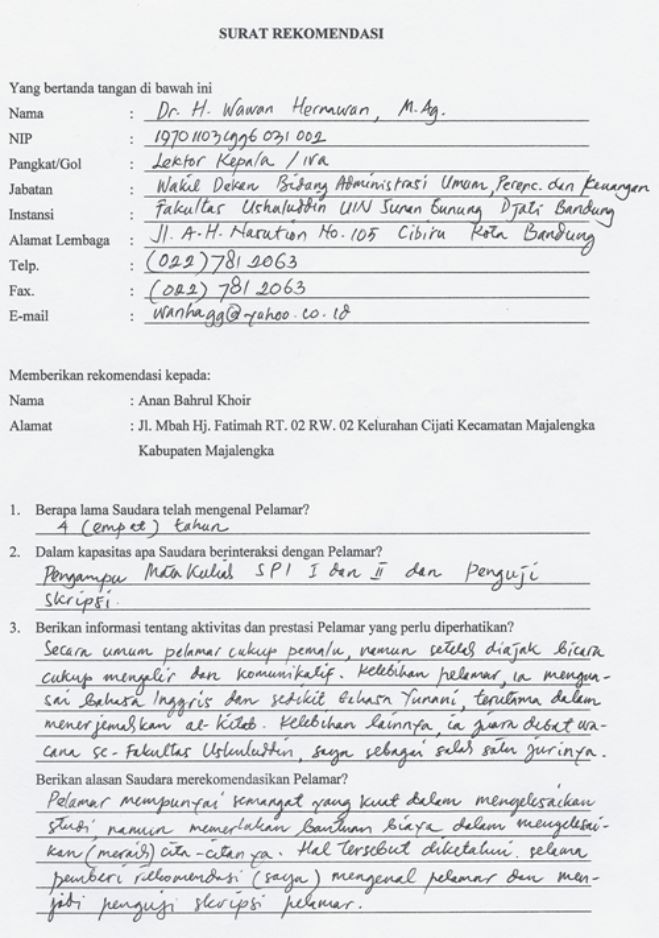 SURAT REKOMENDASI
Yang bertanda tangan di bawah ini
Nama : Dr. H. Wawan Hernawan, M.Ag.
NIP : 19701103 1996 031 002
Pangkat/Gol : Lektor Kepala / IVa
Jabatan : Wakil Dekan Bidang Administrasi Umum, Perenc. dan Keuangan
Instansi : Fakultas Ushuluddin UIN Sunan Gunung Djati Bandung
Alamat Lembaga : Jl. A.H. Nasution No. 105 Cibiru Kota Bandung
Telp. : (022) 781 2063
Fax. : (022) 781 2063
E-mail : wanhagg@yahoo.co.id
Memberikan rekomendasi kepada:
Nama : Anan Bahrul Khoir
Alamat : Jl. Mbah Hj. Fatimah RT. 02 RW. 02 Kelurahan Cijati Kecamatan Majalengka
Kabupaten Majalengka
1. Berapa lama Saudara telah mengenal Pelamar?
4 (empat) tahun
2. Dalam kapasitas apa Saudara berinteraksi dengan Pelamar?
Pengampu Mata Kuliah SPI I dan II dan Penguji
Skripsi.
3. Berikan informasi tentang aktivitas dan prestasi Pelamar yang perlu diperhatikan?
Secara umum pelamar cukup pemalu, namun setelah diajak bicara
cukup mengalir dan komunikatif. Kelebihan pelamar, ia mengua-
sai bahasa Inggris dan sedikit bahasa Yunani, terutama dalam
menerjemahkan al-kitab. Kelebihan lainnya, ia juara debat wa-
cana se-Fakultas Ushuluddin, saya sebagai salah satu jurinya.
Berikan alasan Saudara merekomendasikan Pelamar?
Pelamar mempunyai semangat yang kuat dalam mengelesaikan
studi, namun memerlukan bantuan biaya dalam mengelesai-
kan (meraih) cita-citanya. Hal tersebut diketahui selama
pemberi rekomendasi (saya) mengenal pelamar dan men-
jadi penguji skripsi pelamar.